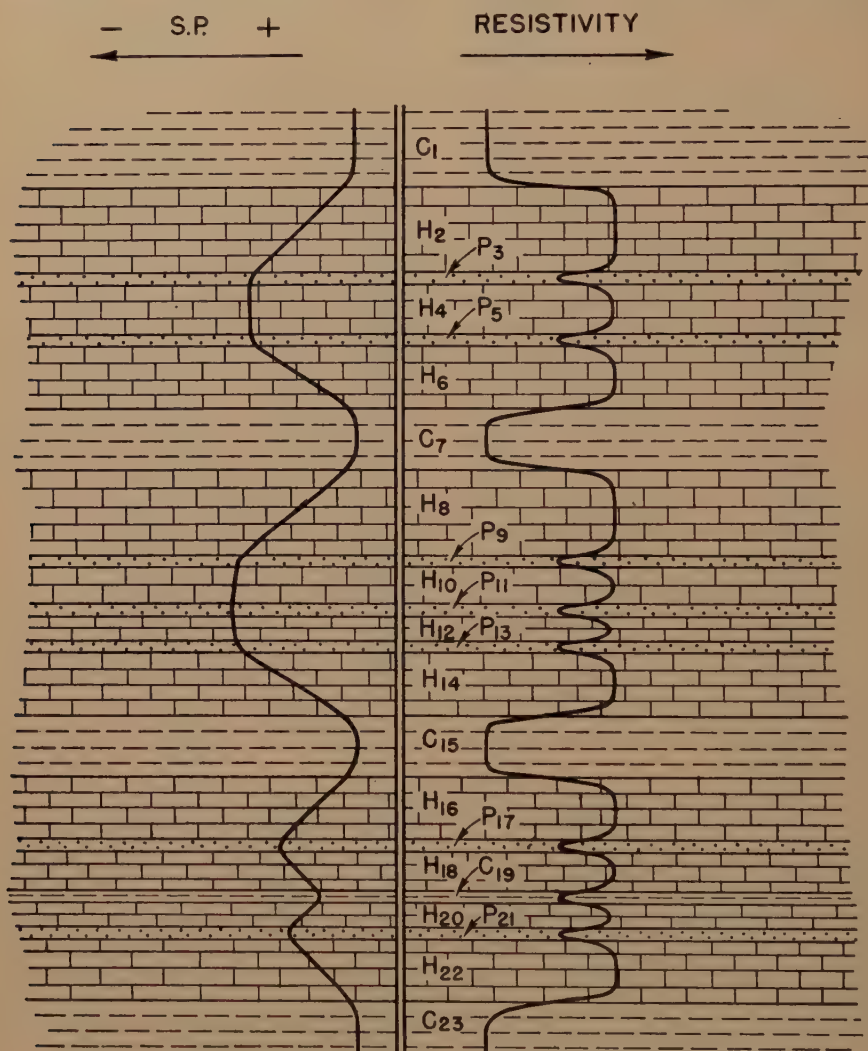 − S.P. + RESISTIVITY
C₁
H₂
P₃
H₄
P₅
H₆
C₇
H₈
P₉
H₁₀ P₁₁
H₁₂ P₁₃
H₁₄
C₁₅
H₁₆
P₁₇
H₁₈ C₁₉
H₂₀ P₂₁
H₂₂
C₂₃